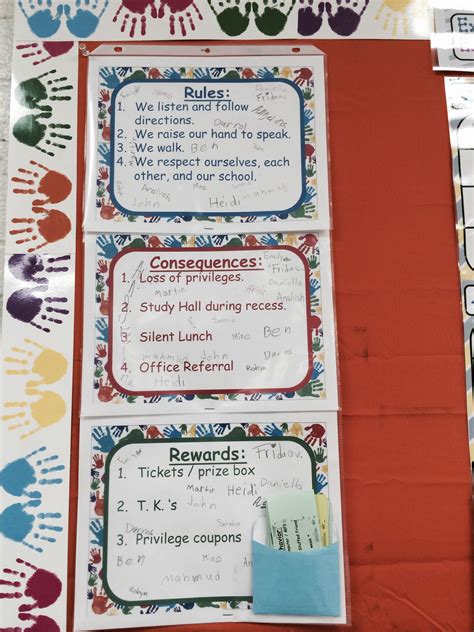 Rules:
Daniella
Fridrov.
1. We listen and follow
directions.
Darrol
2. We raise our hand to speak.
3. We walk. Ben
Martin
4. We respect ourselves, each
other, and our school.
Nino
John Heidi mahmud
Consequences:
Emily
Fridrov
1. Loss of privileges.
Daniella
Martin
2. Study Hall during recess.
3. Silent Lunch
Nino Ben
mahmud John Darrol
4. Office Referral
Robyn
Heidi
Rewards:
Fridrov.
1. Tickets / prize box
Martin Heidi Daniella
2. T. K. 's John
Darrol
3. Privilege coupons
Ben Nino
Mahmud
Robyn